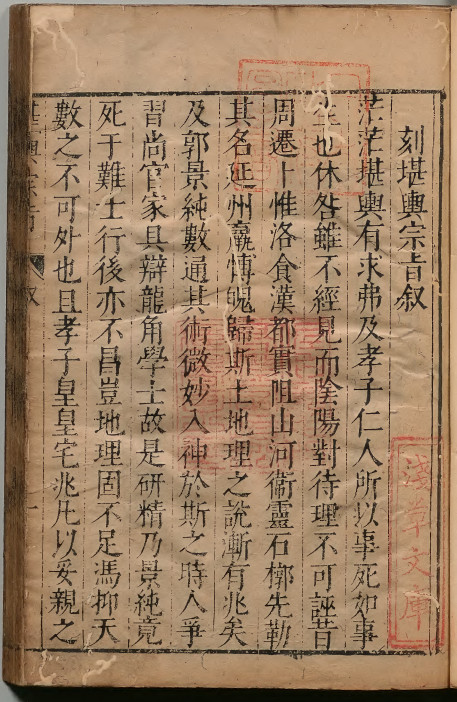 刻堪輿宗旨叙
茫茫堪輿有求弗及孝子仁人所以事死如事
生也休咎雖不經見而陰陽對待理不可誣昔
周遷卜惟洛食漢都實阻山河衞靈石槨先勒
其名延州嬴博魄歸斯土地理之說漸有兆矣
及郭景純數通其術微妙入神於斯之時人爭
習尚官家具辯龍角學士故是研精乃景純竟
死于難士行後亦不昌豈地理固不足馮抑天
數之不可外也且孝子皇皇宅兆凡以妥親之
堪輿宗旨
叙
一
淺草文庫